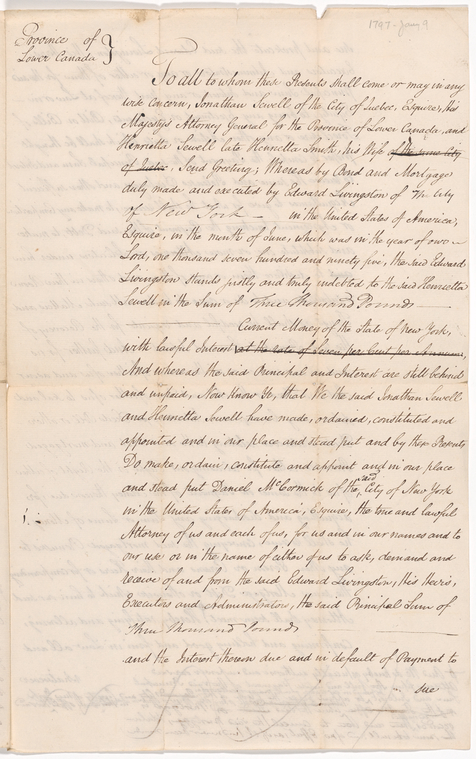 1797-Jan 9
Province of }
Lower Canada }
To all to whom these Presents shall come or may in any
wise concern, Jonathan Sewell of the City of Quebec, Esquire, his
Majestys Attorney General for the Province of Lower Canada, and
Henrietta Sewell late Henrietta Smith, his Wife of the same City
of Quebec, Send Greeting; Whereas by Bond and Mortgage
duly made and executed by Edward Livingston of The City
of New York — in the United States of America,
Esquire, in the month of June, which was in the year of our
Lord, one thousand seven hundred and ninety five, the said Edward
Livingston stands justly and truly indebted to the said Henrietta
Sewell in the Sum of Three Thousand Pounds —
Current Money of the State of New York,
with lawful Interest at the rate of Seven per Cent per Annum,
And whereas the said Principal and Interest are still behind
and unpaid, Now Know Ye, that We the said Jonathan Sewell
and Henrietta Sewell have made, ordained, constituted and
appointed and in our place and stead put and by these Presents
Do make, ordain, constitute and appoint and in our place
and stead put Daniel McCormick of the said City of New York
in the United States of America, Esquire, the true and lawful
Attorney of us and each of us, for us and in our names and to
our use or in the name of either of us to ask, demand and
receive of and from the said Edward Livingston, His Heirs,
Executors and Administrators, the said Principal Sum of
Three Thousand Pounds —
and the Interest thereon due and in default of Payment to
sue